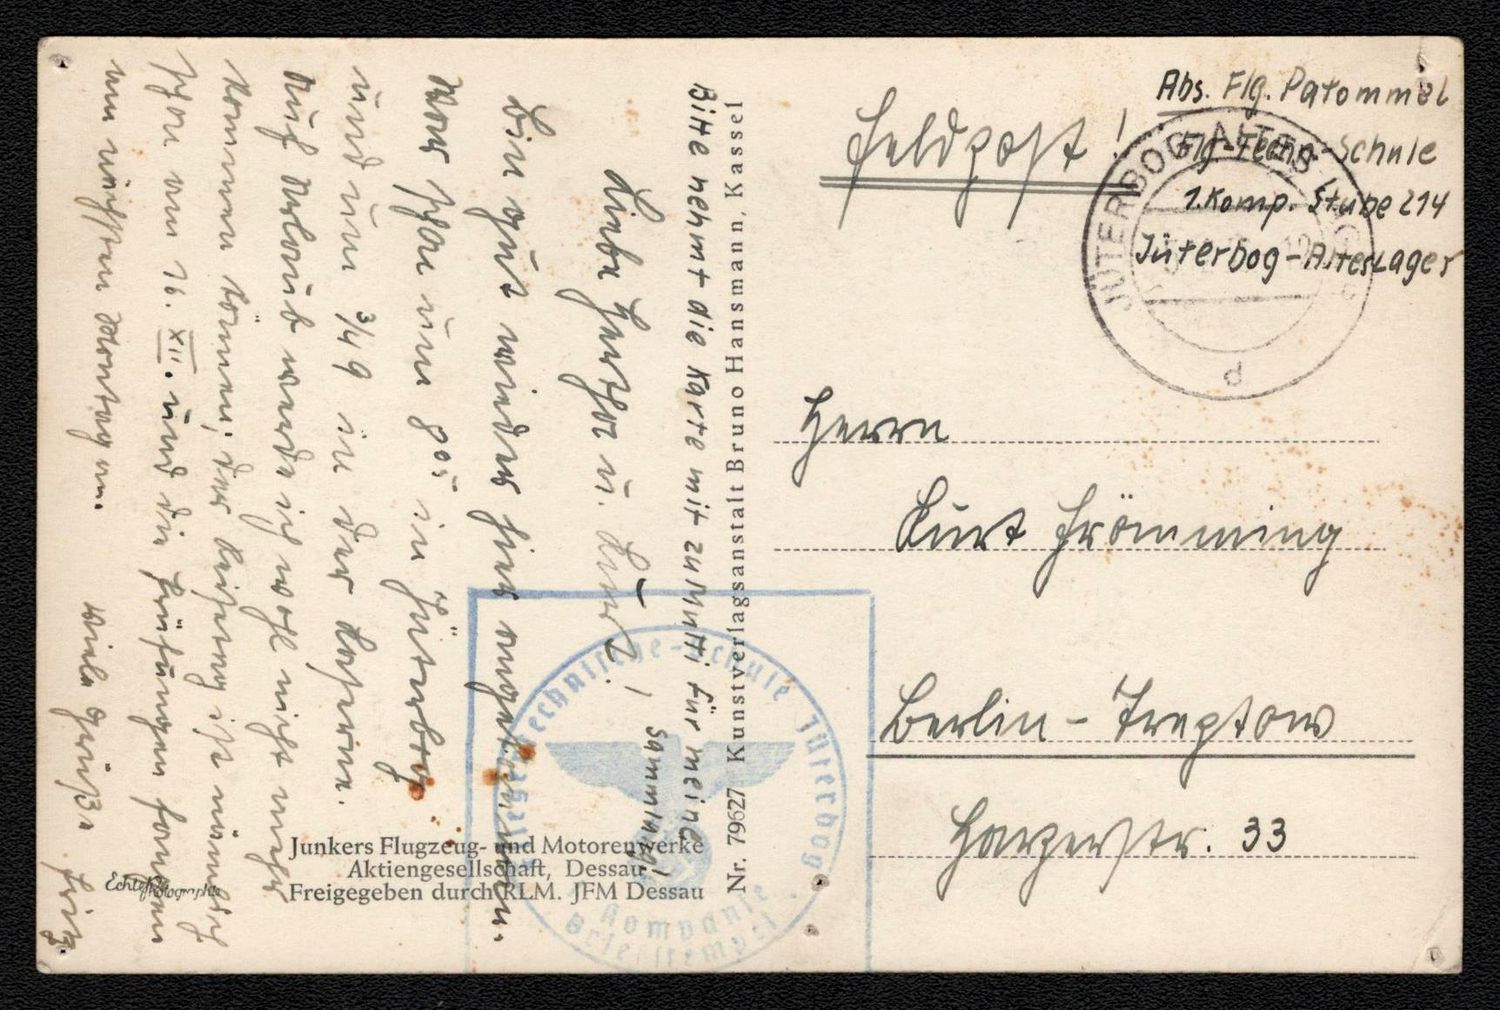 Feldpost!
Abs. Flg. Patommel
Flg-Techn-Schule
1.Komp. Stube 214
Jüterbog-AltesLager
JÜTERBOG ALTES LAGER
d
Herrn
Kurt Frömming
Berlin-Treptow
Harzerstr. 33
Bitte nehmt die Karte mit zu Mutti für meine
Sammlung!
Liebe Hertha u. Kurt!
Bin gut wieder hier angekommen.
War schon um 8⁰⁵ in Jüterbog
und um ¾9 in der Kaserne.
Auf Urlaub werde ich wohl nicht mehr
kommen können; der Leitung ist nämlich
schon am 16. XII. und die Prüfungen fangen
am nächsten Montag an.
Viele Grüße Fritz.
Nr. 79627 Kunstverlagsanstalt Bruno Hansmann, Kassel
Fliegertechnische-Schule Jüterbog
Kompanie
Briefstempel
Junkers Flugzeug- und Motorenwerke
Aktiengesellschaft, Dessau
Freigegeben durch RLM. JFM Dessau
Echte Photographie